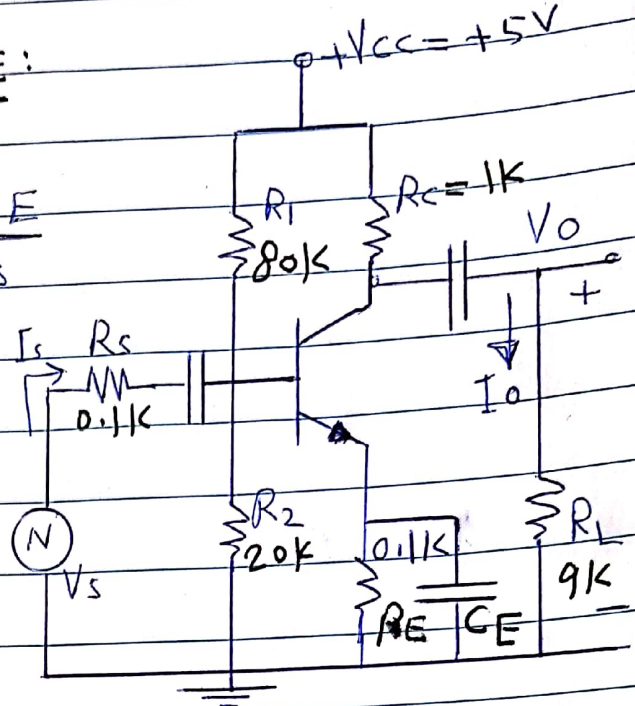 E:
+VCC = +5V
E
s
R1
80K
RC = 1K
VO
+
Is
RS
0.1K
IO
N
VS
R2
20K
0.1K
RE
CE
RL
9K